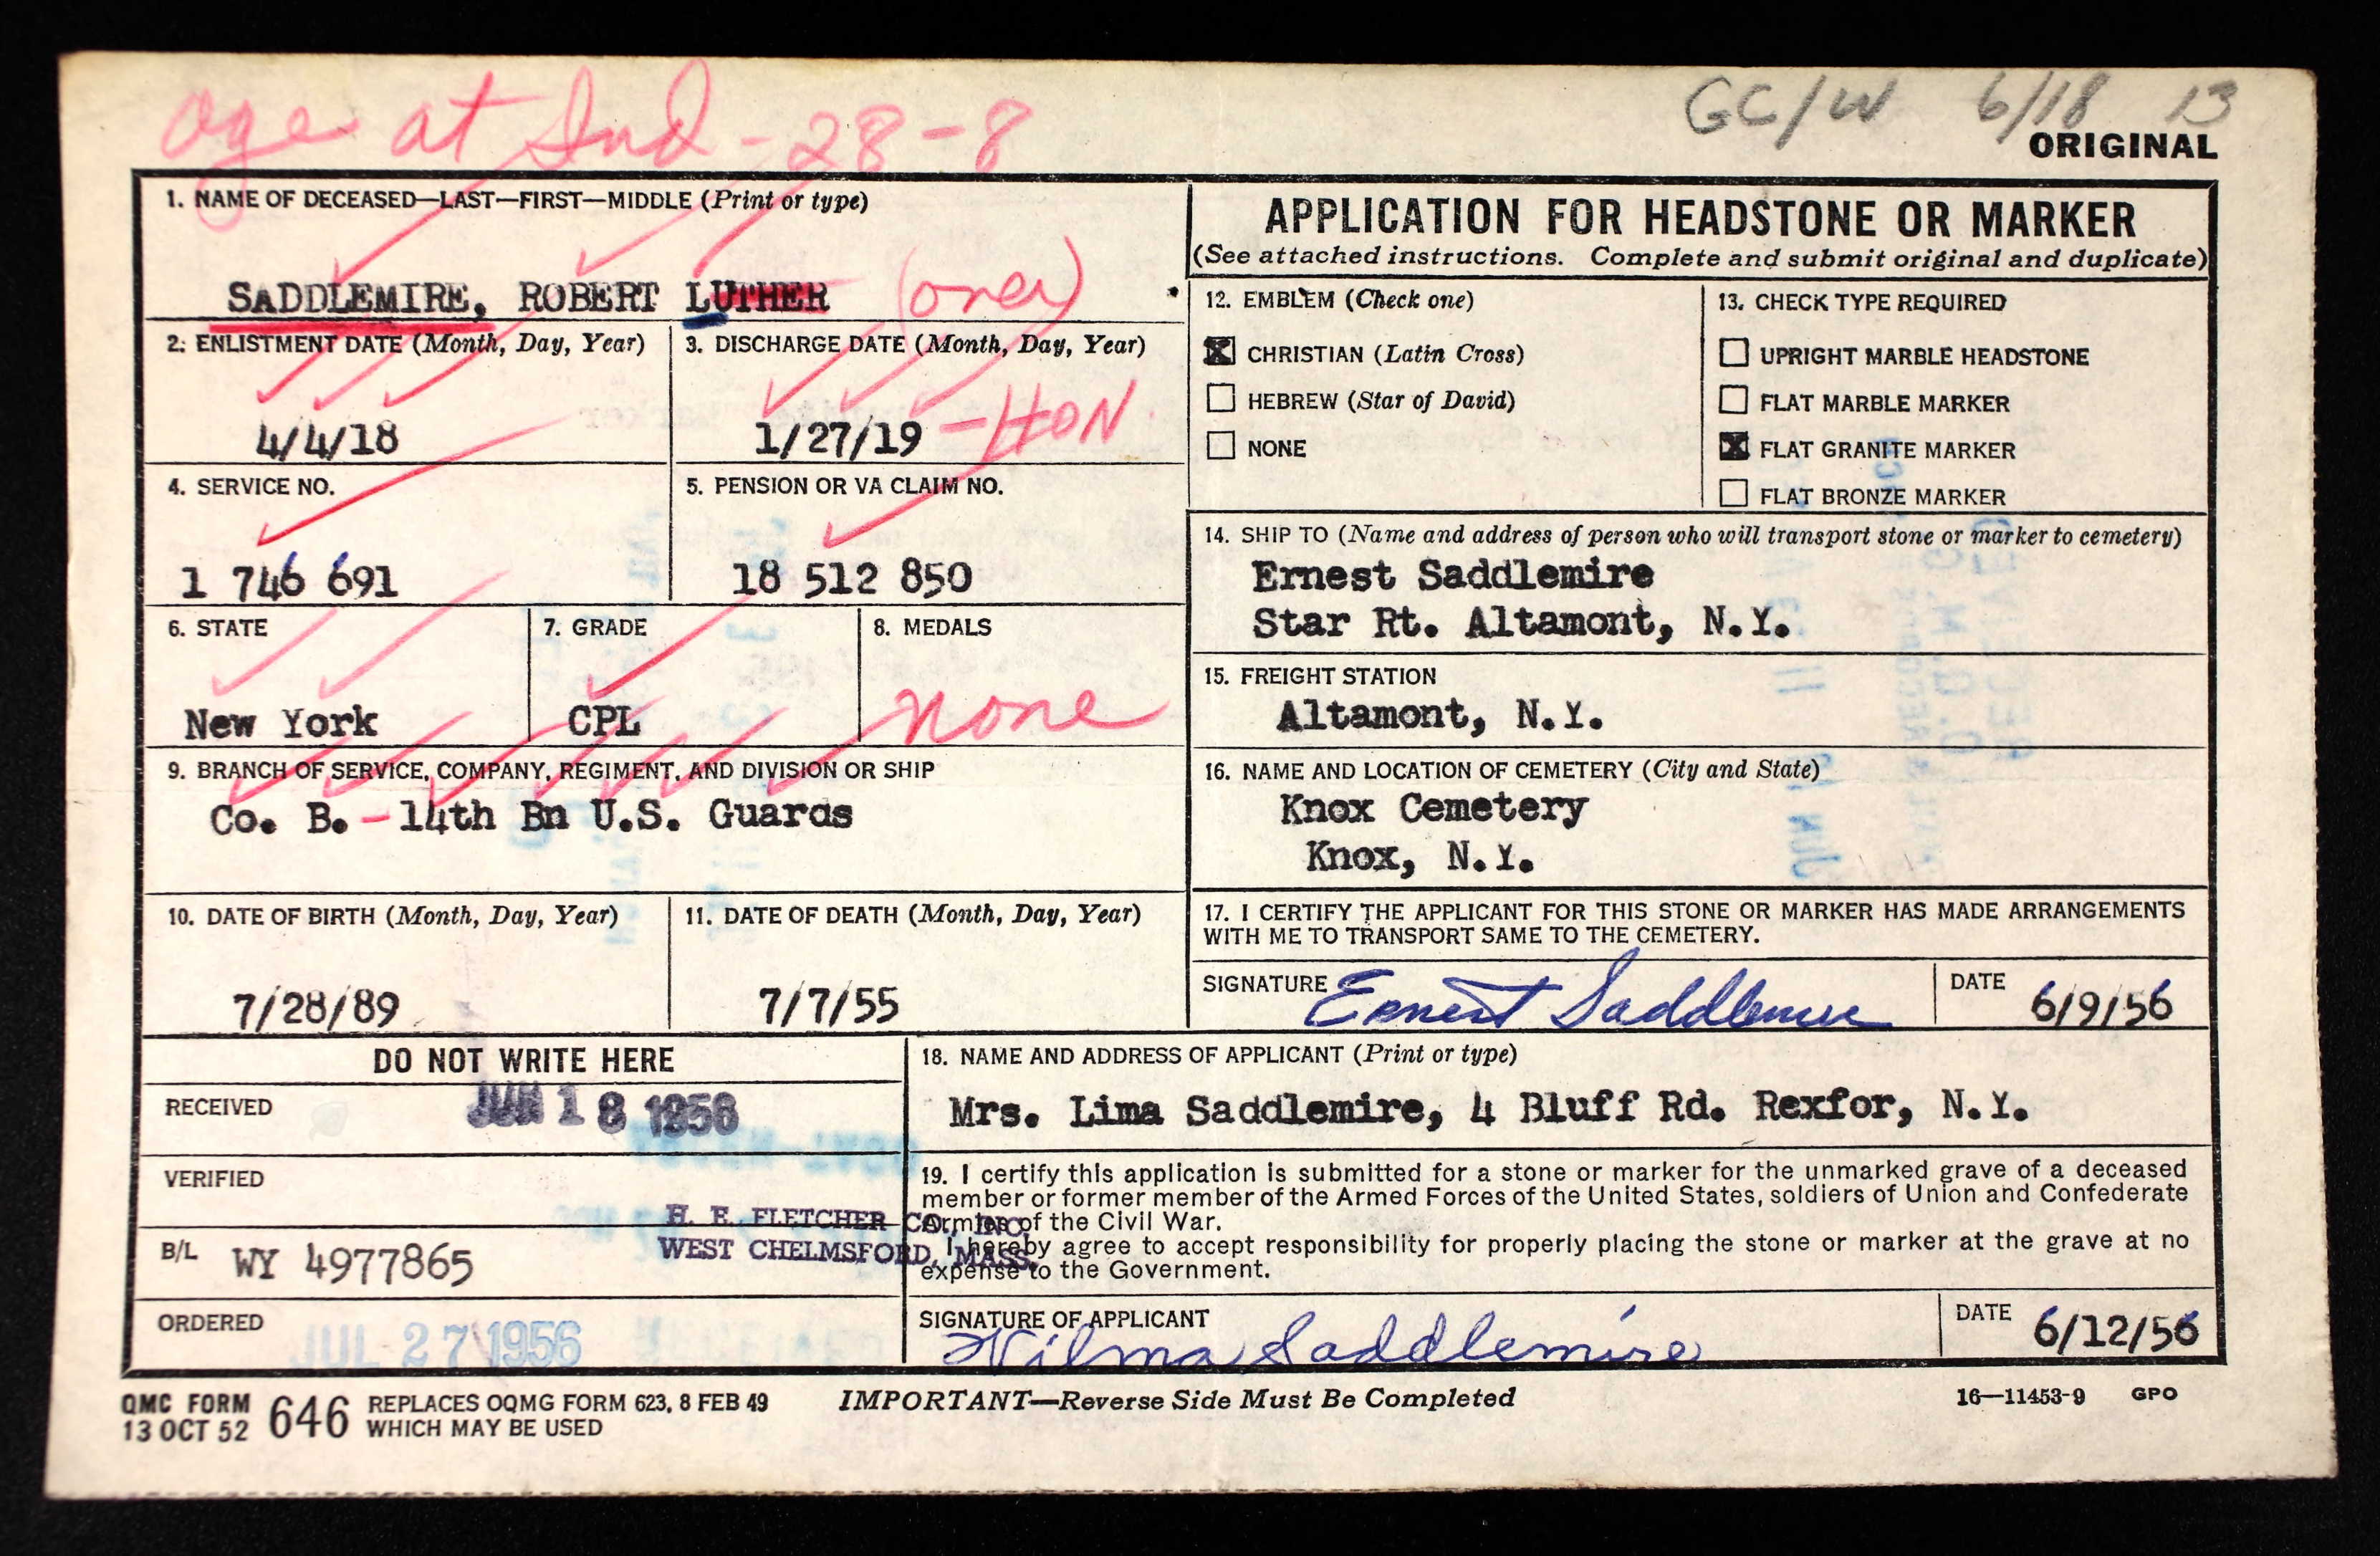 age at Ind - 28 - 8
GC/W 6/18 13
ORIGINAL
1. NAME OF DECEASED—LAST—FIRST—MIDDLE (Print or type)
SADDLEMIRE, ROBERT LUTHER (over)
2. ENLISTMENT DATE (Month, Day, Year)
4/4/18
3. DISCHARGE DATE (Month, Day, Year)
1/27/19 - HON
4. SERVICE NO.
1 746 691
5. PENSION OR VA CLAIM NO.
18 512 850
6. STATE
New York
7. GRADE
CPL
8. MEDALS
none
9. BRANCH OF SERVICE, COMPANY, REGIMENT, AND DIVISION OR SHIP
Co. B. - 14th Bn U.S. Guards
10. DATE OF BIRTH (Month, Day, Year)
7/28/89
11. DATE OF DEATH (Month, Day, Year)
7/7/55
APPLICATION FOR HEADSTONE OR MARKER
(See attached instructions. Complete and submit original and duplicate)
12. EMBLEM (Check one)
CHRISTIAN (Latin Cross)
HEBREW (Star of David)
NONE
13. CHECK TYPE REQUIRED
UPRIGHT MARBLE HEADSTONE
FLAT MARBLE MARKER
FLAT GRANITE MARKER
FLAT BRONZE MARKER
14. SHIP TO (Name and address of person who will transport stone or marker to cemetery)
Ernest Saddlemire
Star Rt. Altamont, N.Y.
15. FREIGHT STATION
Altamont, N.Y.
16. NAME AND LOCATION OF CEMETERY (City and State)
Knox Cemetery
Knox, N.Y.
17. I CERTIFY THE APPLICANT FOR THIS STONE OR MARKER HAS MADE ARRANGEMENTS
WITH ME TO TRANSPORT SAME TO THE CEMETERY.
SIGNATURE Ernest Saddlemire
DATE 6/9/56
DO NOT WRITE HERE
RECEIVED JUN 18 1956
VERIFIED
H. E. FLETCHER CO., INC.
WEST CHELMSFORD, MASS.
B/L WY 4977865
ORDERED JUL 27 1956
18. NAME AND ADDRESS OF APPLICANT (Print or type)
Mrs. Lima Saddlemire, 4 Bluff Rd. Rexfor, N.Y.
19. I certify this application is submitted for a stone or marker for the unmarked grave of a deceased
member or former member of the Armed Forces of the United States, soldiers of Union and Confederate
Armies of the Civil War.
I hereby agree to accept responsibility for properly placing the stone or marker at the grave at no
expense to the Government.
SIGNATURE OF APPLICANT
Wilma Saddlemire
DATE 6/12/56
QMC FORM
13 OCT 52 646 REPLACES OQMG FORM 623, 8 FEB 49
WHICH MAY BE USED
IMPORTANT—Reverse Side Must Be Completed
16—11453-9 GPO